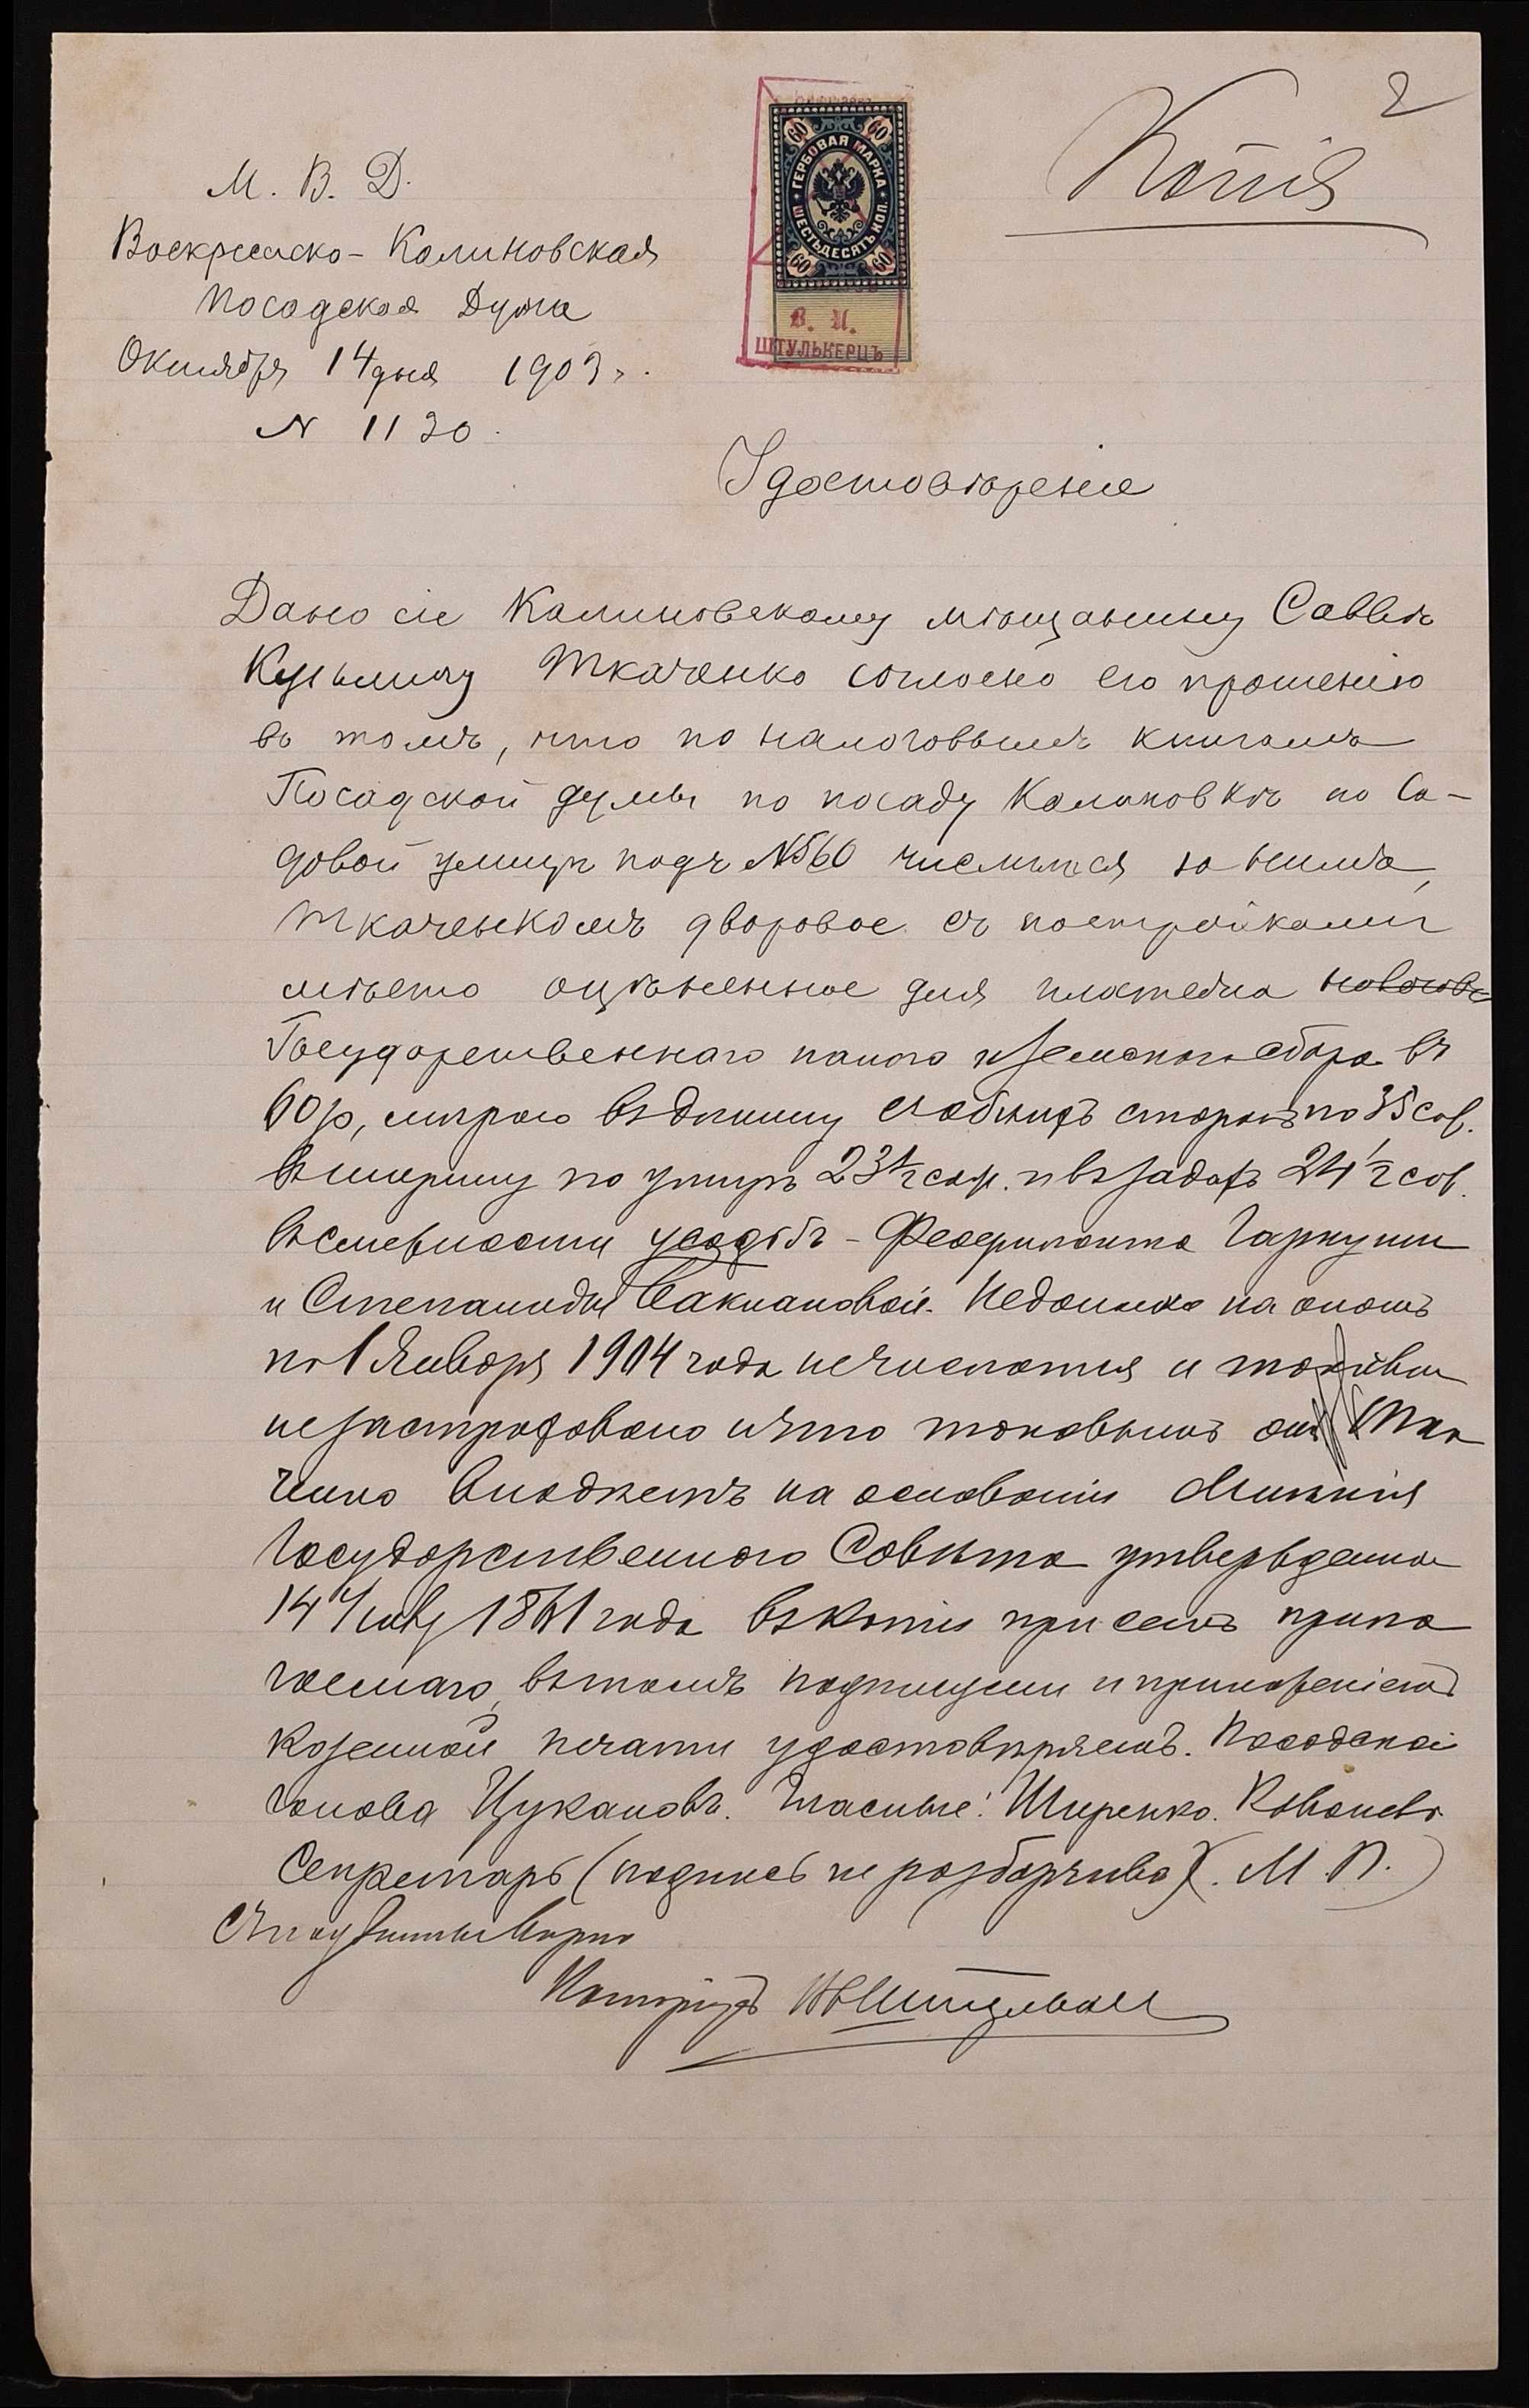 2
Копія
М. В. Д.
Воскресенско-Калиновская
Посадская Дума
Октября 14 дня 1903 г.
N 1130
60 60
ГЕРБОВАЯ МАРКА
ШЕСТЬДЕСЯТЪ КОП.
60 60
В. И.
ШТУЛЬКЕРЦЪ
Удостовѣреніе
Дано сіе Калиновскому мѣщанину Саввѣ
Кузьмичу Ткаченко согласно его прошенію
въ томъ, что по налоговымъ книгамъ
Посадской думы по посаду Калиновкѣ по Са-
довой улицѣ подъ № 560 числится за нимъ,
Ткаченкомъ дворовое съ постройками
мѣсто оцѣненное для платежа
Государственнаго налога и Земскаго сбора въ
60 р, мѣрою въ длину съ обѣихъ сторонъ по 35 саж.
въ ширину по улицѣ 23 1/2 саж. и въ задахъ 24 1/2 саж.
въ смежности усадьбъ - Гаркуши
и Степаниды Недоимка на ономъ
по 1 Января 1904 года не числится и
незастраховано и что таковымъ онъ Тка
ченко владѣетъ на основаніи Мнѣнія
Государственнаго Совѣта утвержден
14 1861 года въ копіи при семъ прила
гаемаго, въ томъ подписями и приложеніемъ
казенной печати удостовѣряемъ. Посадской
голова Цукановъ. Гласные: Ширенко. Ковалевъ
Секретарь (подпись не разборчива). (М. П.)
Съ подлиннымъ вѣрно
Нотаріусъ